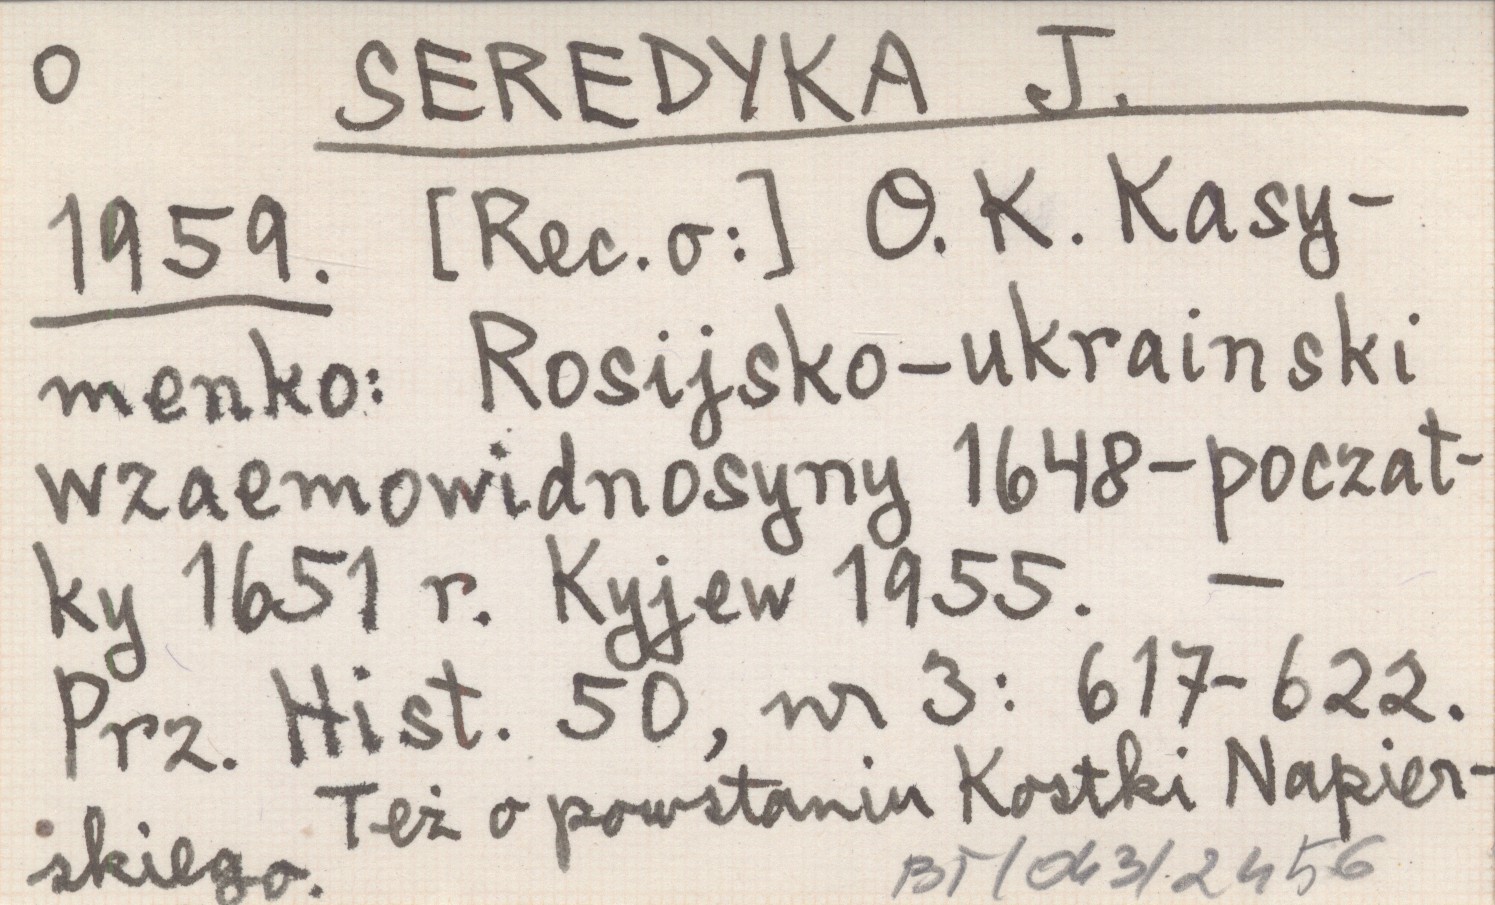 O SEREDYKA J.
1959. [Rec. o:] O. K. Kasy-
menko: Rosijsko-ukrainski
wzaemowidnosyny 1648-poczat-
ky 1651 r. Kyjew 1955. —
Prz. Hist. 50, nr 3: 617-622.
Też o powstaniu Kostki Napier-
skiego.
BT/043/2456